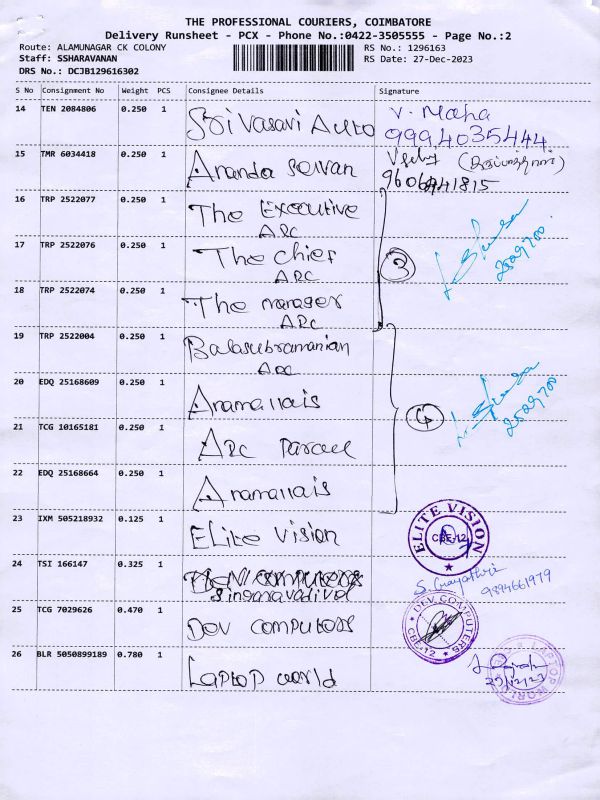 THE PROFESSIONAL COURIERS, COIMBATORE
Delivery Runsheet - PCX - Phone No.:0422-3505555 - Page No.:2
Route: ALAMUNAGAR CK COLONY RS No.: 1296163
Staff: SSHARAVANAN RS Date: 27-Dec-2023
DRS No.: DCJB129616302
S No Consignment No Weight PCS Consignee Details Signature
14 TEN 2084806 0.250 1 Sri Vasavi Auto V. Maha
9994035444
15 TMR 6034418 0.250 1 Ananda Selvan
16 TRP 2522077 0.250 1 The Executive
ARC
17 TRP 2522076 0.250 1 The chief 3
ARC
2509700
18 TRP 2522074 0.250 1 The manager
ARC
19 TRP 2522004 0.250 1 Balasubramanian
ARC
20 EDQ 25168609 0.250 1 Anamallais 4
2509700
21 TCG 10165181 0.250 1 ARC Parcel
22 EDQ 25168664 0.250 1 Anamallais
23 IXM 505218932 0.125 1 Elite Vision ELITE VISION
CBE-12
24 TSI 166147 0.325 1 Singaravadivel S. Gayathri
9894661979
25 TCG 7029626 0.470 1 Dev computers DEV COMPUTERS
CBE-12
26 BLR 5050899189 0.780 1 Laptop world LAPTOP WORLD
27/12/23